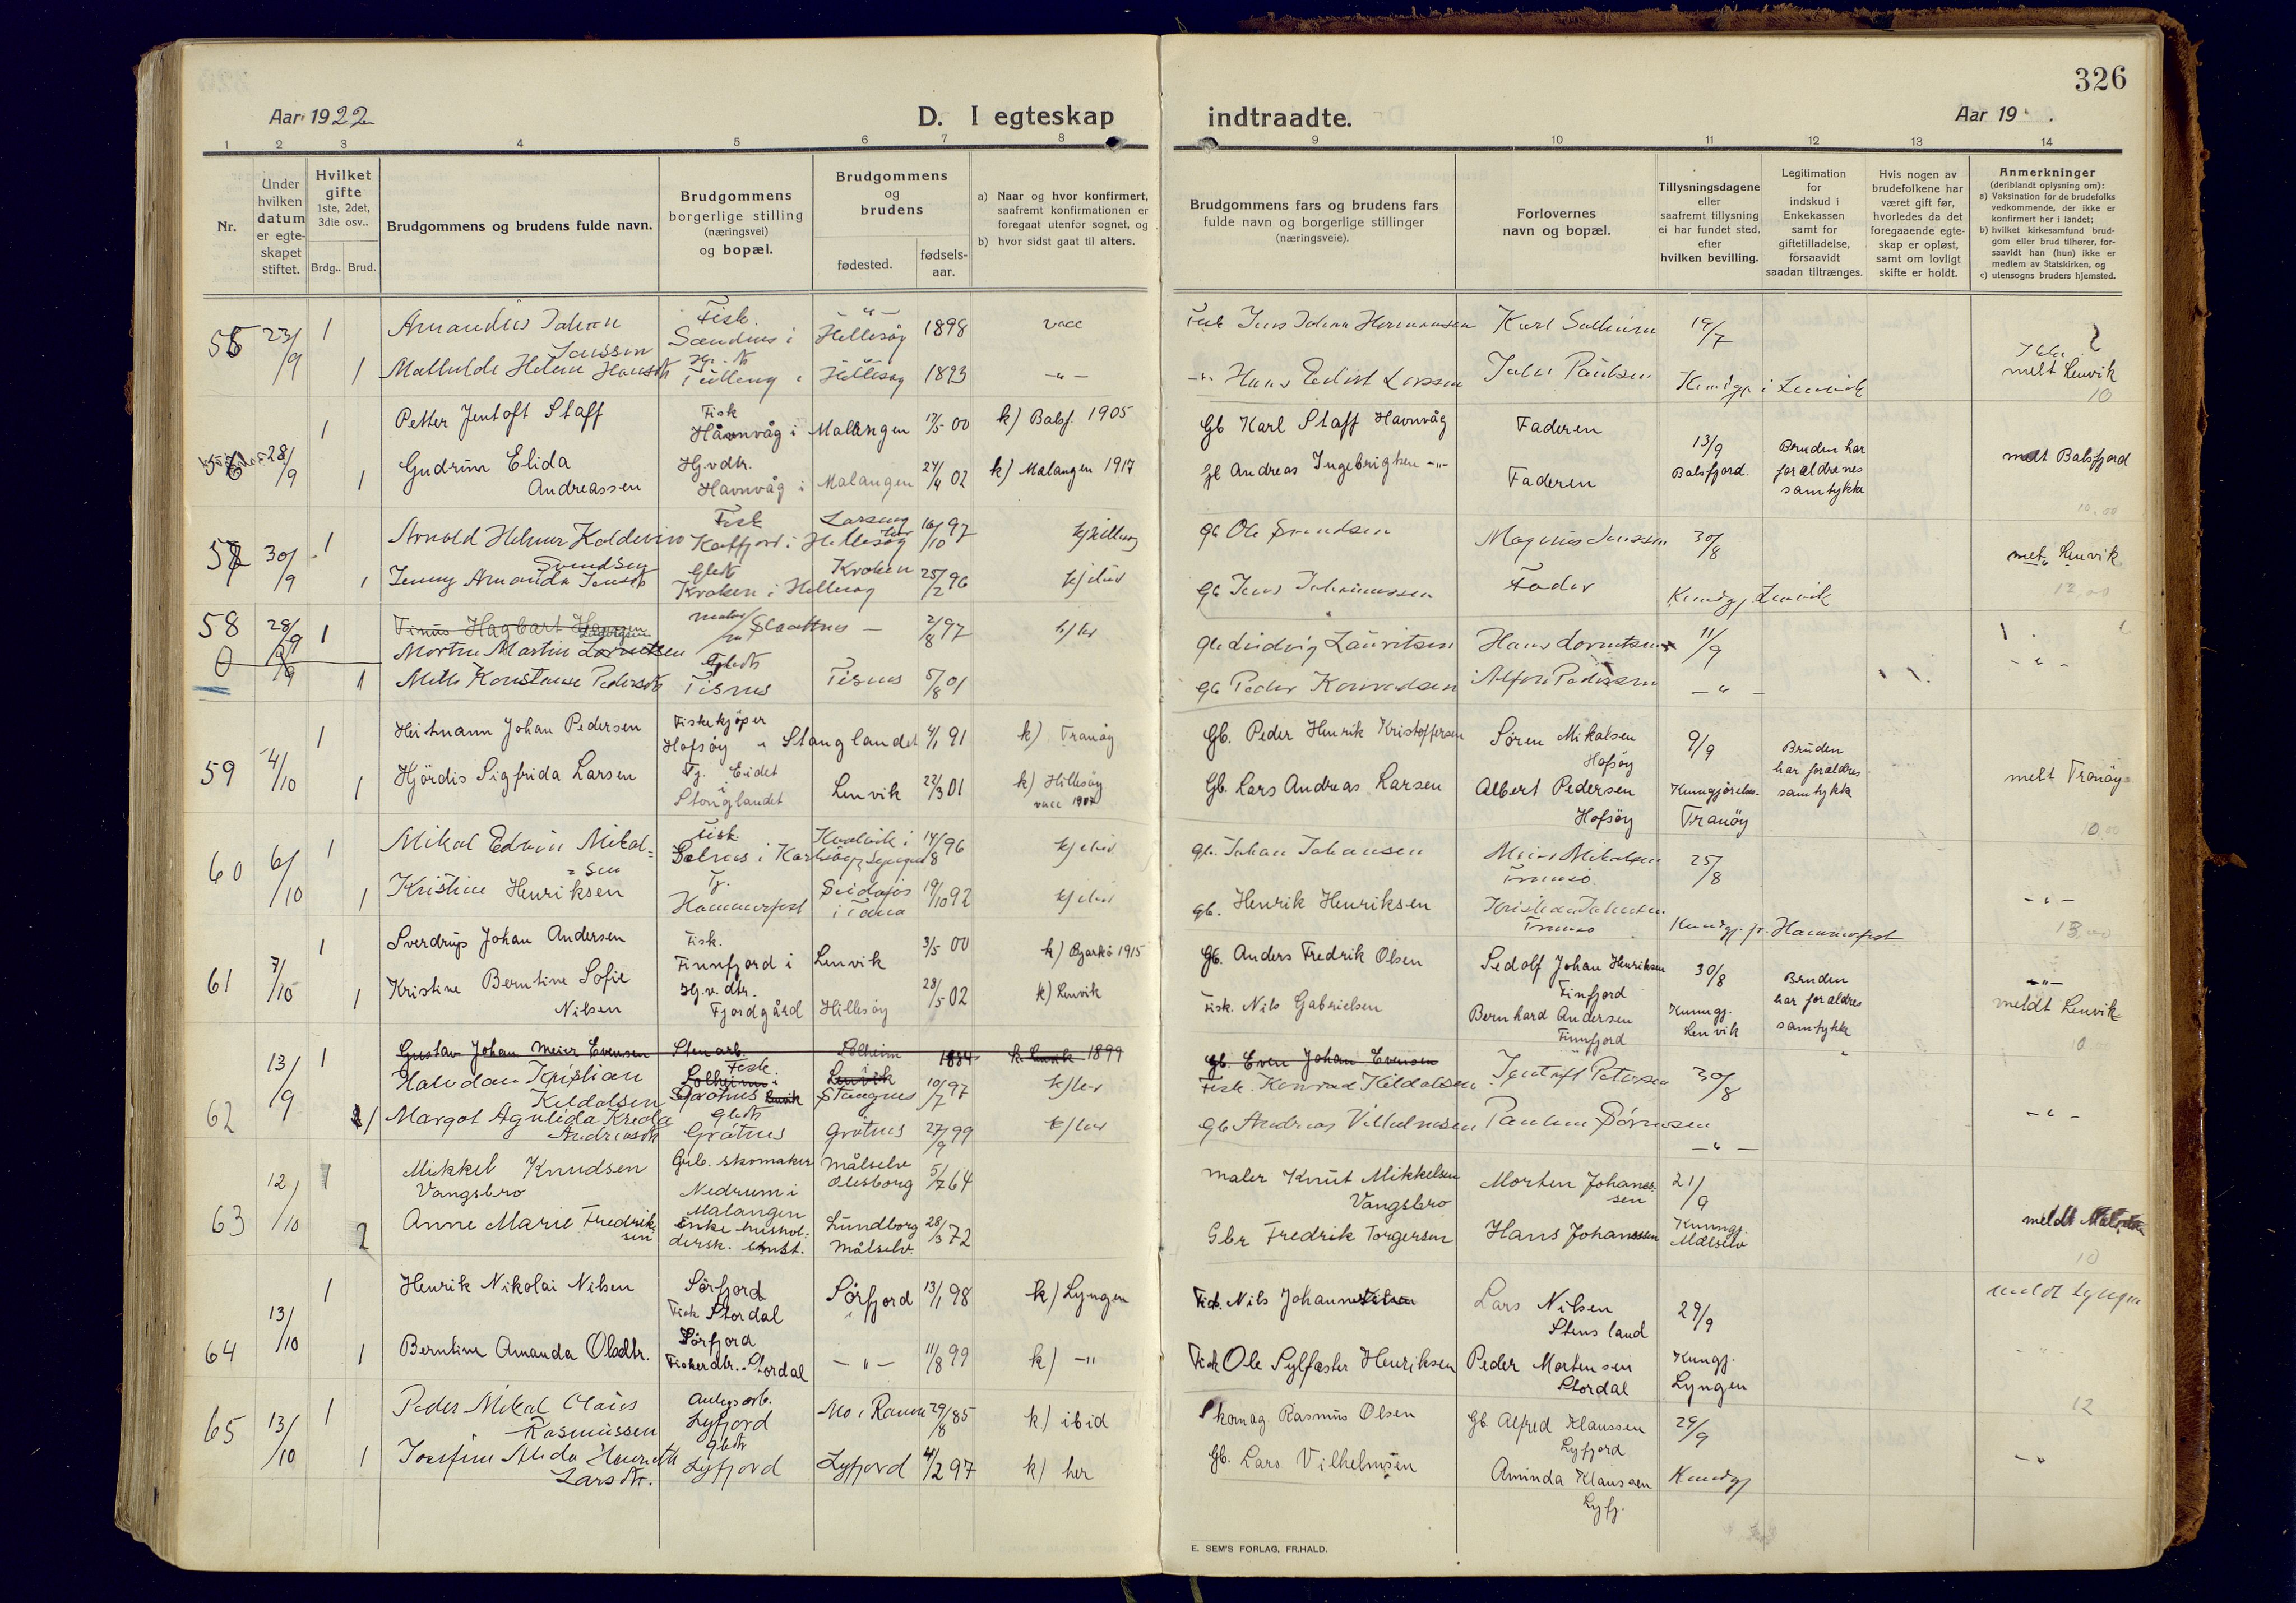 326
Aar 1922
D. I egteskap
indtraadte.
Aar 19
1 2 3 4 5 6 7 8
9 10 11 12 13 14
Nr.
Under hvilken datum er egteskapet stiftet.
Hvilket gifte
1ste, 2det, 3die osv..
Brdg.. Brud.
Brudgommens og brudens fulde navn.
Brudgommens borgerlige stilling (næringsvei) og bopæl.
Brudgommens og brudens
fødested.
fødsels-aar.
a) Naar og hvor konfirmert, saafremt konfirmationen er foregaat utenfor sognet, og
b) hvor sidst gaat til alters.
Brudgommens fars og brudens fars fulde navn og borgerlige stillinger (næringsveie).
Forlovernes navn og bopæl.
Tillysningsdagene eller saafremt tillysning ei har fundet sted. efter hvilken bevilling.
Legitimation for indskud i Enkekassen samt for giftetilladelse, forsaavidt saadan tiltrænges.
Hvis nogen av brudefolkene har været gift før, hvorledes da det foregaaende egteskap er opløst, samt om lovligt skifte er holdt.
Anmerkninger
(deriblandt oplysning om):
a) Vaksination for de brudefolks vedkommende, der ikke er konfirmert her i landet;
b) hvilket kirkesamfund brudgom eller brud tilhører, forsaavidt han (hun) ikke er medlem av Statskirken, og
c) utensogns bruders hjemsted.
23/9 1 Amandus Johan Fisk. Hillesøy 1898 vacc
Jens Johan Hermansen Karl Solheim 19/7
1 Mathilde Helene Hansdtr Hillesøy 1893
Hans Edvart Larssen Kundgj. i Lenvik melt Lenvik
10
28/9 1 Petter Jentoft Staff Fisk Havnvåg i Malangen 17/5 00 k) Balsf. 1905
Gb Karl Staff Havnvåg Faderen 13/9 Balsfjord. Bruden har forældrenes samtykke melt Balsfjord
1 Gudrun Elida Andreassen Hj.v.dtr. Havnvåg i Malangen 24/4 02 k) Malangen 1917
Gb Andreas Ingebrigtsen -"- Faderen
10,00
57 30/9 1 Arnold Helmer Koldevin Svendsen Fisk Katfjord i Hillesøy 16/10 97
Gb Ole Svendsen Magnus Jenssen 30/8
1 Jenny Amanda Jensdtr Kroken i Hillesøy Kroken 25/2 96
Gb Jens Johannessen Fader Kundgj. Lenvik
12,00
58 28/9 1 Tinus Hagbart Hansen
Morten Martin Lorentsen 2/8 97
Gb Ludvig Lauritsen Hans Lorentsen 11/9
0 1 Mette Konstanse Pedersdtr Tisnes Tisnes 5/8 01
Gb Peder Konradsen Alfon Pedersen - " -
59 4/10 1 Heitmann Johan Pedersen Fiskekjøper Hofsøy i Stanglandet 4/1 91 k) Tranøy
Gb. Peder Henrik Kristoffersen Søren Mikalsen Hofsøy 9/9 Bruden har forældres samtykke
1 Hjördis Sigfrida Larsen Tj. Eidet i Stonglandet Lenvik 22/3 01 k) Hillesøy vacc
Gb. Lars Andreas Larsen Albert Pedersen Hofsøy Kunngjørelse. Tranöy melt Tranöy
10,00
60 6/10 1 Mikal Edvin Mikalsen Fisk. 14/8 96
Gb. Johan Johansen Mikalsen Tromsø. 25/8
1 Kristine Henriksen Tj. Hammerfest Seidafos i Tana 19/10 92
Gb. Henrik Henriksen Tromsø Kundgj. Hammerfest
13,00
61 7/10 1 Sverdrup Johan Andersen Fisk. Finnfjord i Lenvik 3/5 00 k) Bjarkö 1915
Gb. Anders Fredrik Olsen Sedolf Johan Henriksen Finfjord 30/8 Bruden har forældres samtykke
1 Kristine Berntine Sofie Nilsen Hj.v.dtr. Fjordgård Hillesøy 28/5 02 k) Lenvik
Fisk. Nils Gabrielsen Bernhard Andersen Finnfjord Kunngj. Lenvik meldt Lenvik
10,00
62 13/9 1 Gustav Johan Meier Evensen Stenarb. Solheim i Lenvik Solheim Lenvik 1884 k. Lenvik 1899
Gb. Even Johan Evensen
Halvdan Kristian Kildalsen Fisk. 10/7 97
Fisk. Konrad Kildalsen Jentoft Petersen 30/8
1 Margot Agnlida Andreasdtr Gbdtr Gråtnes Gråtnes 27/9 99
Gb Andreas Vilhelmsen - " -
63 12/10 1 Mikkel Knudsen Vangsbro Grb. skomaker Nedrum i Malangen Målselv Olesborg 5/7 64
maler Knut Mikkelsen Vangsbro Morten Johansen 21/9
2 Anne Marie Fredriksen Enke husholdersk. Lundborg Målselv 28/3 72
Gbr Fredrik Torgersen Hans Johanssen Kunngj. Målselv meldt
10
64 13/10 1 Henrik Nikolai Nilsen Sørfjord Fisk Stordal Sørfjord 13/1 98 k) Lyngen
Fisk. Nils Johan Lars Nilsen Stensland 29/9 meldt Lyngen
1 Berntine Amanda Olsdtr. Sørfjord Fiskerdtr. Stordal - " - 11/8 99 k) -"-
Fisk Ole Sylfæster Henriksen Peder Mortensen Stordal Kungj. Lyngen
12
65 13/10 1 Peder Mikal Claus Rasmussen Lyfjord Mo i Ranen 29/8 85 k) ibid
Rasmus Olsen Gb Alfred Klaussen Lyfjord 29/9
1 Josefine Alida Larsdtr. Gbdtr Lyfjord Lyfjord 4/2 97 k) her
Gb. Lars Vilhelmsen Aminda Klaussen Lyfj. Kundgj
E. SEM'S FORLAG, FR.HALD.